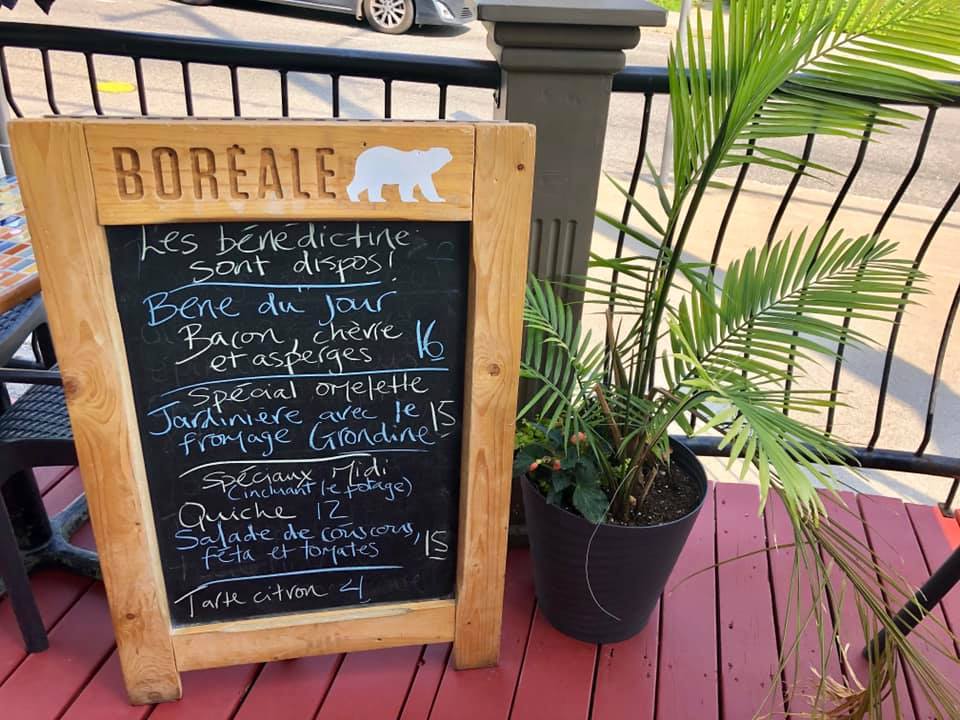 BORÉALE
Les bénédictine
sont dispos!
Bene du jour
Bacon, chèvre
et asperges 16
Spécial omelette
Jardinière avec le 15
fromage Grondine
Spéciaux Midi
(incluant le potage)
Quiche 12
Salade de couscous,
féta et tomates 15
Tarte citron 4